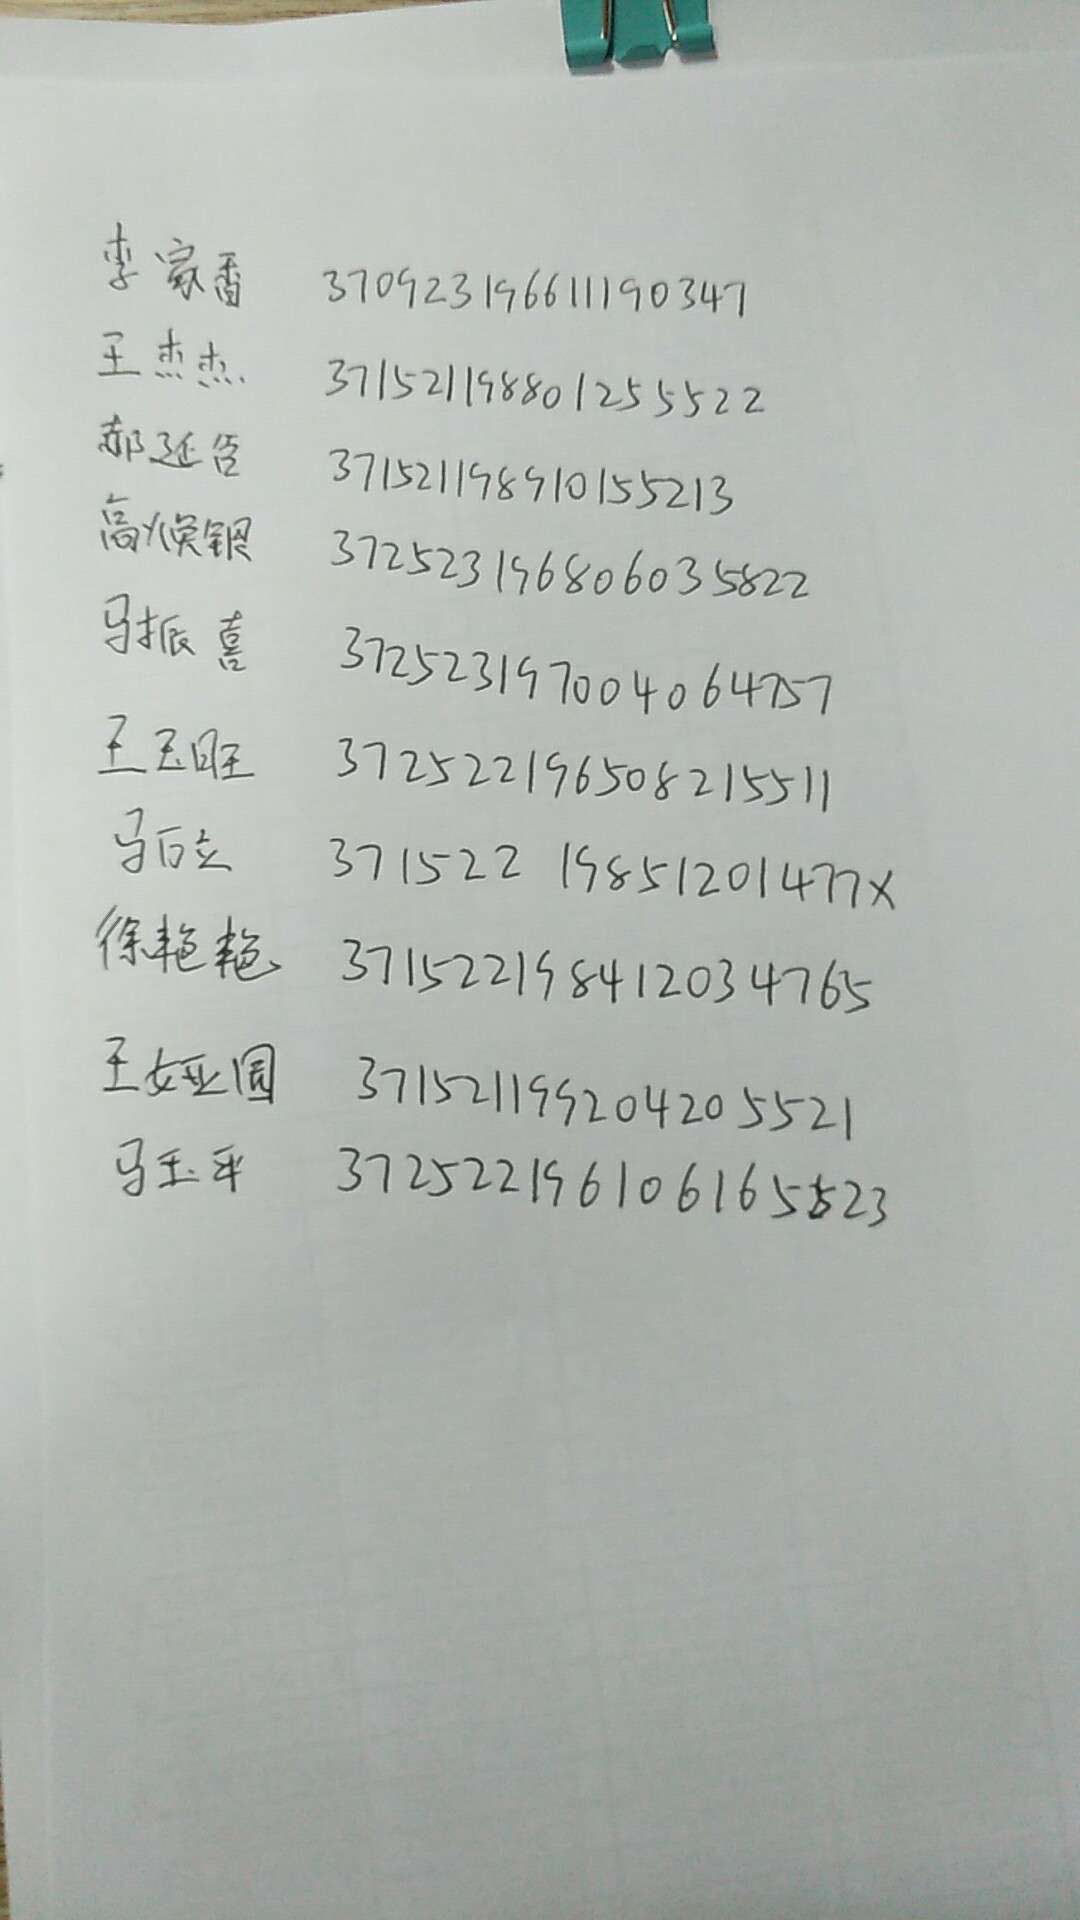 李家香 370923196611190347
王杰杰 371521198801255522
郝延臣 371521198910155213
高焕银 372523196806035822
马振喜 372523197004064757
王玉旺 372522196508215511
马百立 37152219851201477X
徐艳艳 371522198412034765
王娅圆 371521199204205521
马玉平 372522196106165523